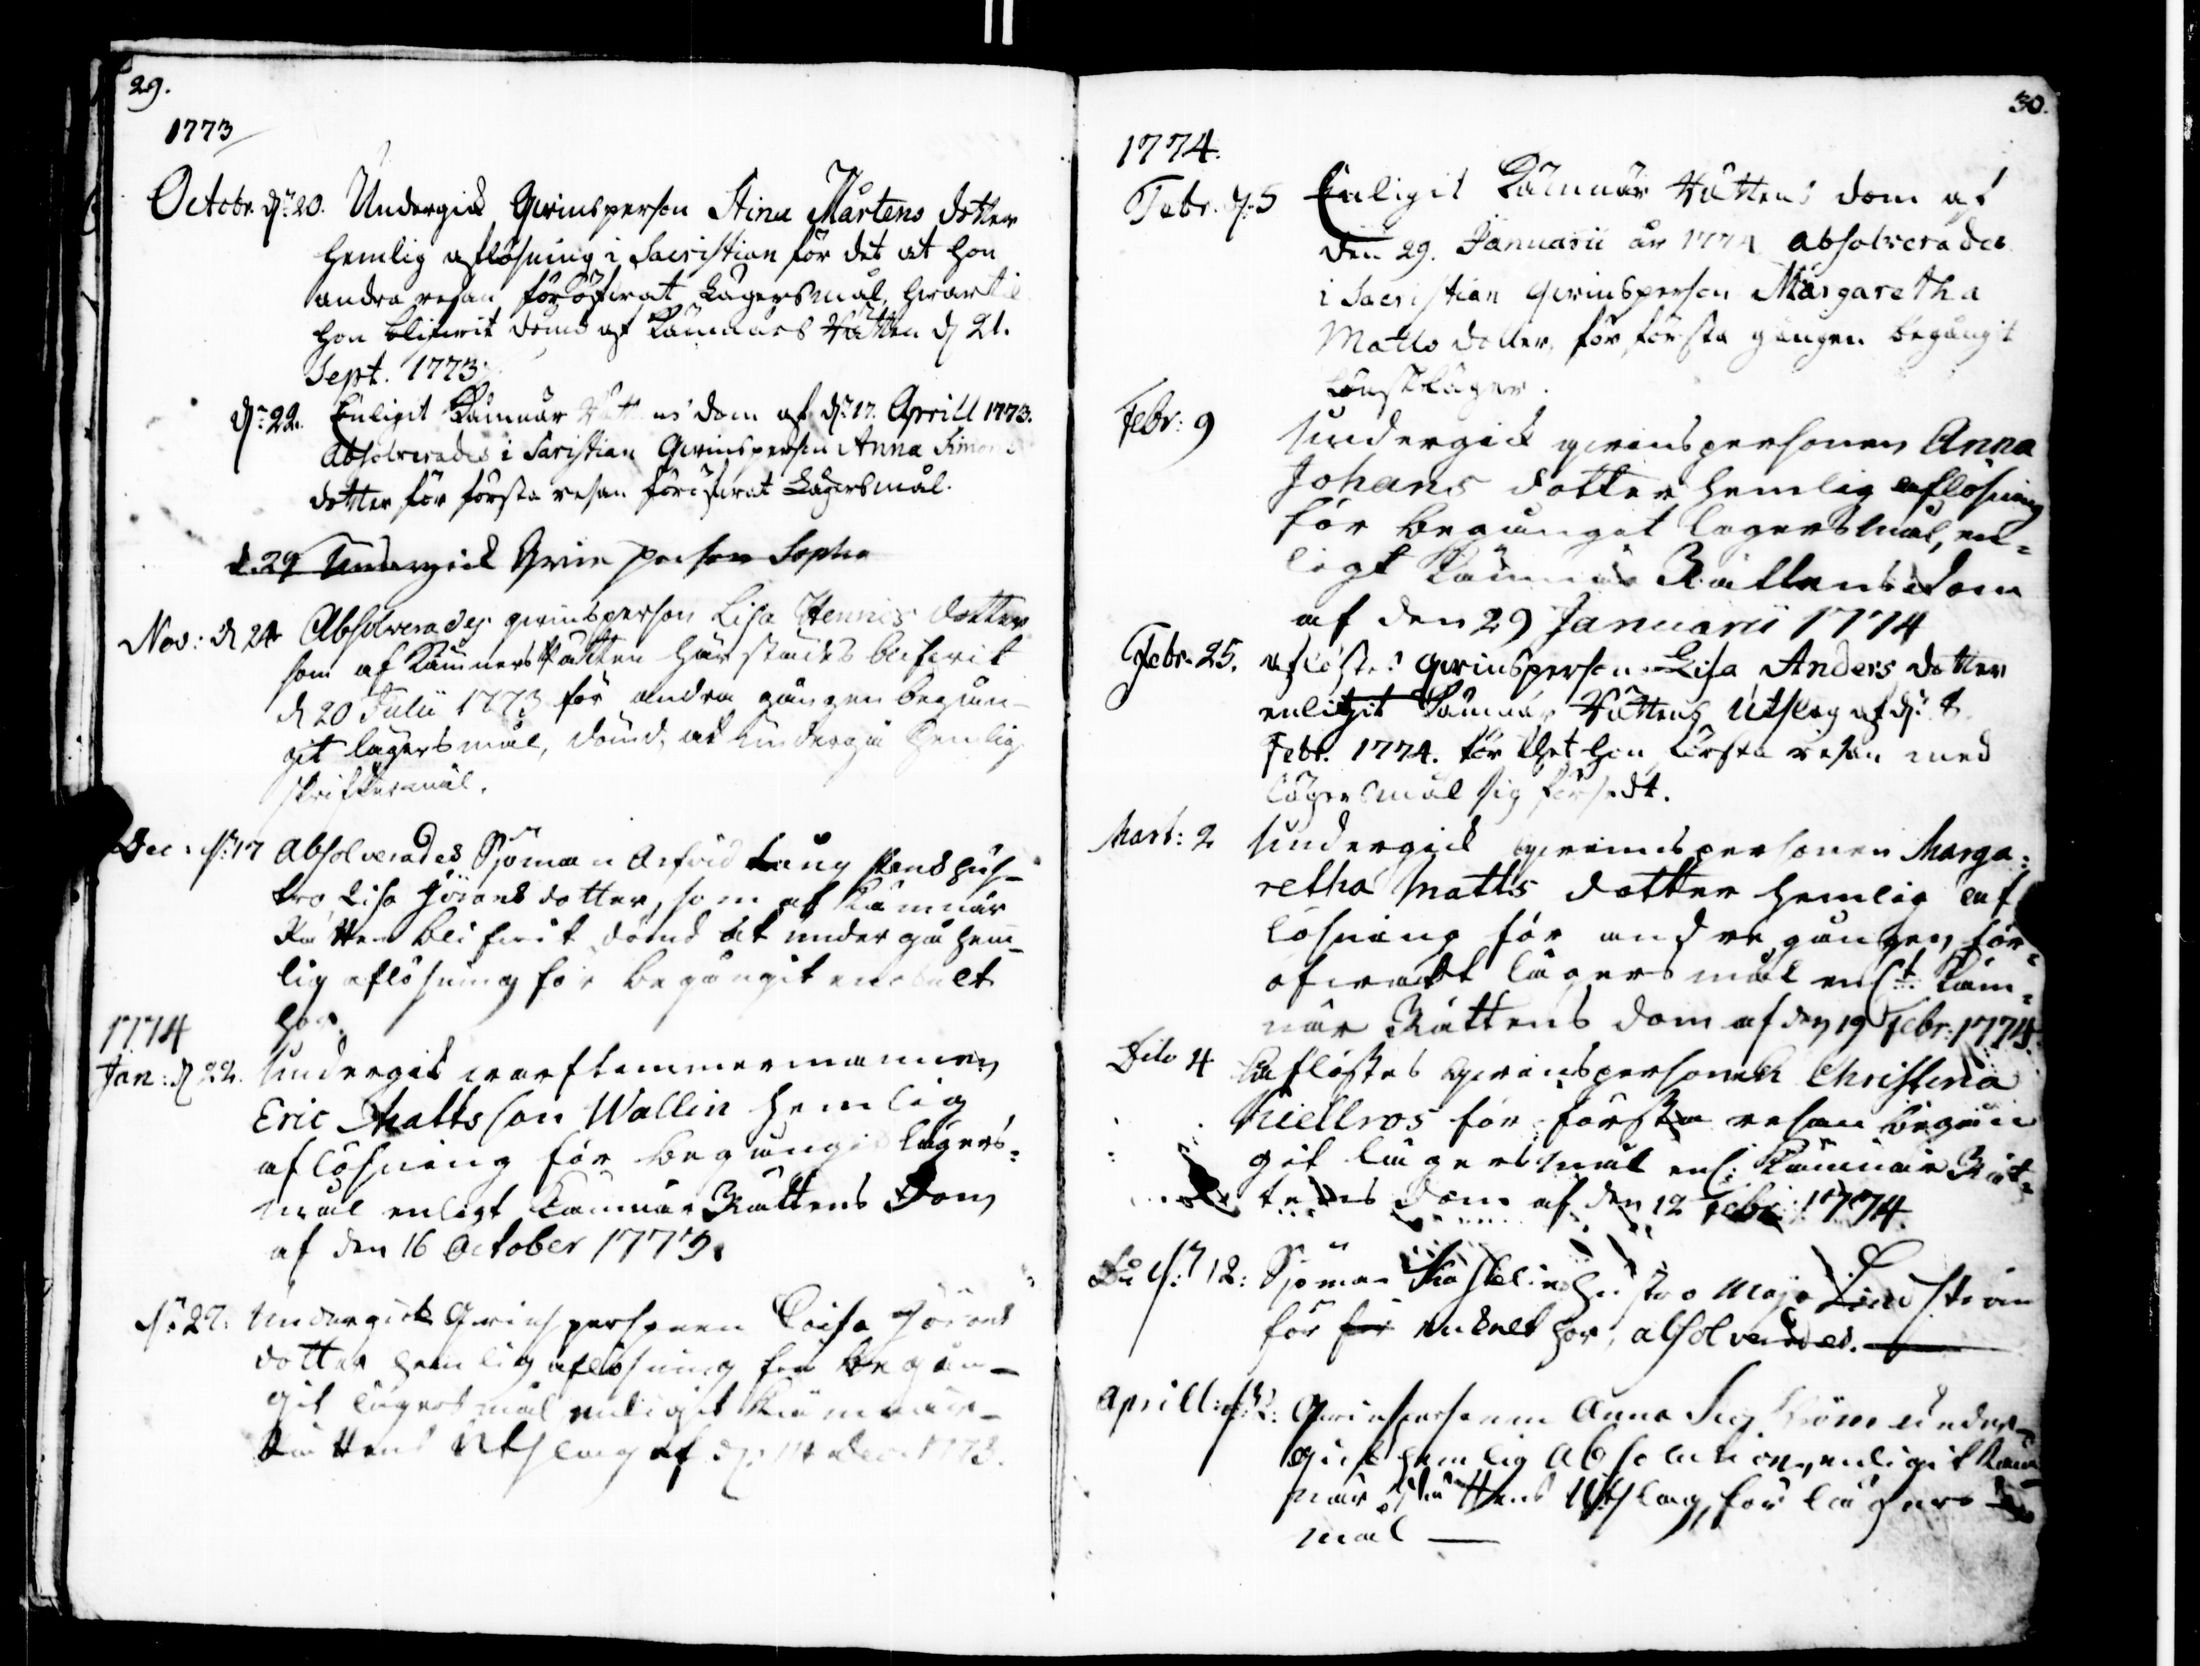 29.
1773
Octobr. d. 20. Undergick Qvinsperson Stina Mårtens dotter
hemlig aflösning i Sacristian för det at hon
andra resan föröfwat Lägersmål, hwartil
hon blifwit dömd af Kämnärs Rätten d. 21.
Sept. 1773.
d. 22. Enligit Kämnär Rättens dom af d. 17. Aprill 1773.
Absolverades i Sacristian Qwinsperson Anna Simons
dotter för första resan föröfwat Lägersmål.
d. 29 Undergick Qvins person Sophia
Nov: d. 24 Absolverades qwinsperson Lisa Hennics dotter
som af Kämners Rätten härstädes blifwit
d. 20 Julii 1773 för andra gången begån-
git lägersmål, dömd, at undergå hemlig
skriftermål.
Dec: d. 17 Absolverades Sjöman Arfvid Lång hus-
tro, Lisa Jörans dotter, som af Kämnär
Rätten blifwit dömd at undergå hem-
lig aflösning för begångit enkelt
hor.
1774
Jan: d. 22. Undergick warftimmermannen
Eric Matts son Wallin hemlig
aflösning för begångit lägers-
mål enligt Kämnär Rättens Dom
af den 16 October 1773.
d. 27: Undergick Qvinspersonen Loisa Jörans
dotter hemlig aflösning för begån-
git lägersmål enligit Kämnär-
Rättens Utslag af d. 14 Dec. 1773.
30.
1774.
Febr. d. 5 Enligit Kämnär Rättens dom af
den 29. Januarii år 1774 absolverades
i Sacristian qwinsperson Margaretha
Matts dotter, för första gången begångit
Lönskläger.
Febr: 9 Undergick qwinspersonen Anna
Johans dotter hemlig aflösning
för begångit lägersmål, en-
ligt Kämnär Rättens dom
af den 29 Januarii 1774
Febr. 25. aflöstes qwinsperson Lisa Anders dotter
enligit Kämnär Rättens Utslag af d.
Febr. 1774. för thet hon första resan med
lägersmål sig försedt.
Mart: 2 Undergick qwinnspersonen Marga:
retha Matts dotter hemlig af
lösning för andre gången för-
öfwadt lägersmål enl:t Käm-
när Rättens dom af den 19 Febr: 1774.
Dito 4 Aflöstes qwinspersonen Christina
Kiellros för första resan begån
git lägersmål enl: Kämnär Rät-
tens dom af den 12 Febr: 1774.
d. 12: Sjöman hustro Maja Lindström
för för enkelt hor, absolverades.
Aprill: d. 2: Qwinspersonen Anna Sig ström under-
gick hemlig Absolution, enligit Käm
när Rättens Utslag, för lägers-
mål